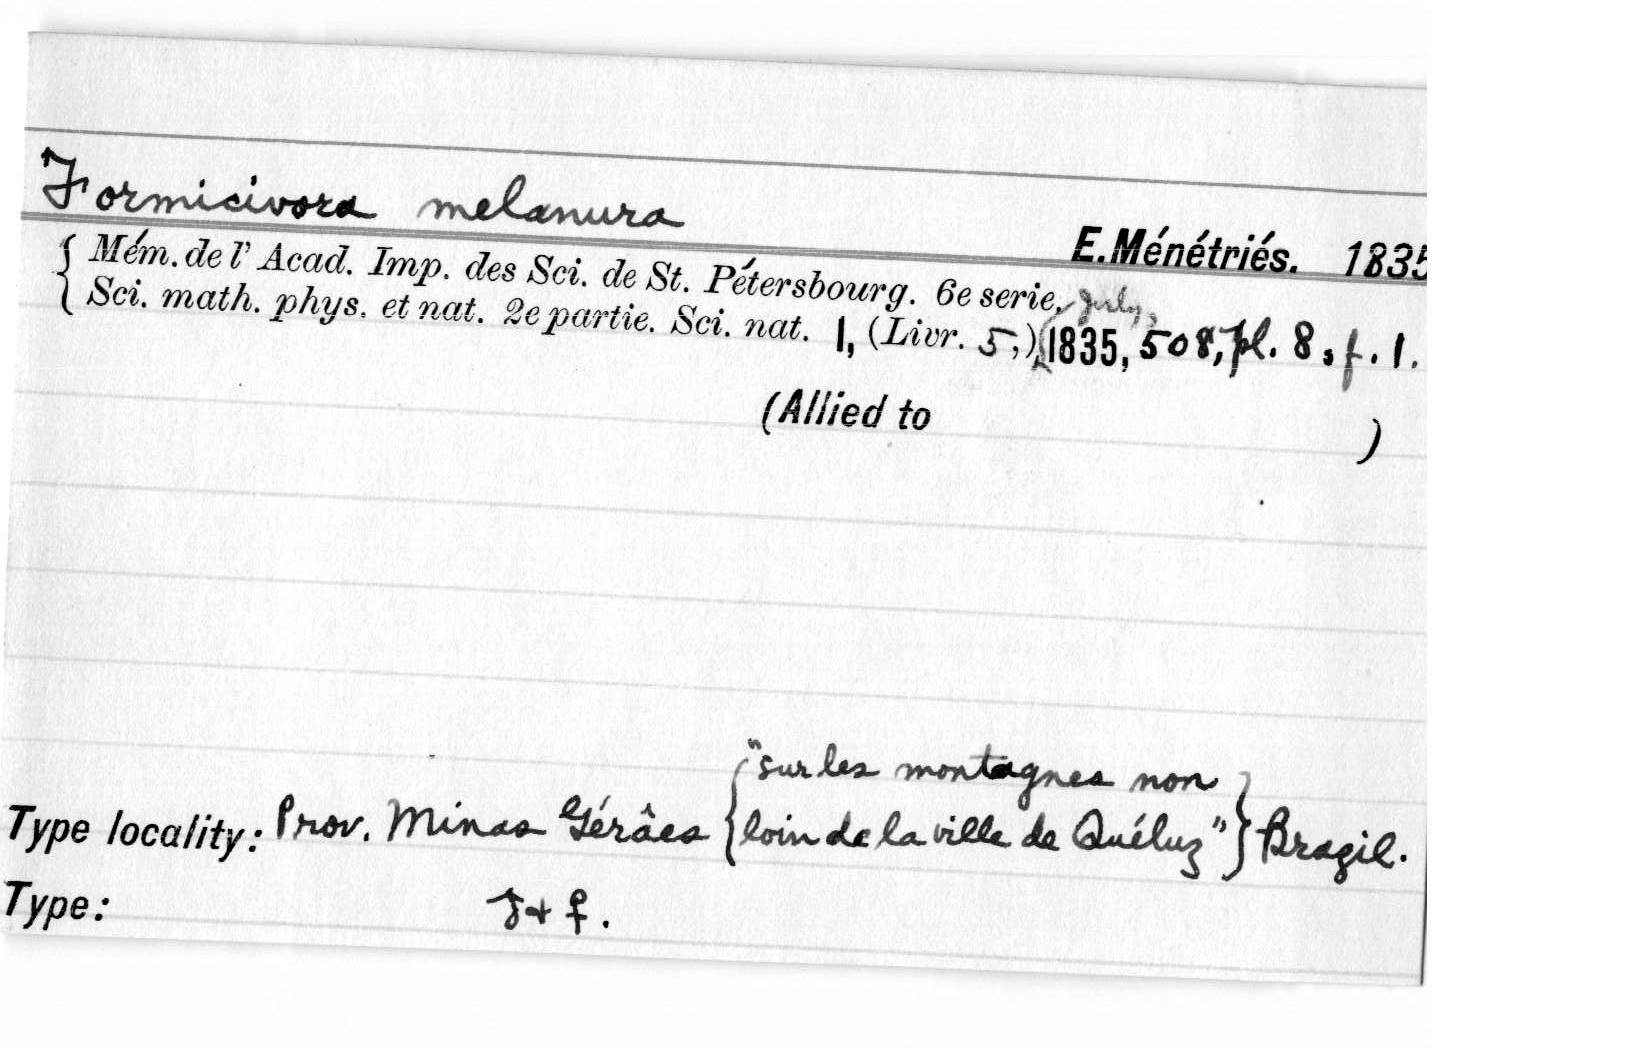 Formicivora melanura
E.Ménétriés. 1835
{ Mém. de l' Acad. Imp. des Sci. de St. Pétersbourg. 6e serie,
{ Sci. math. phys. et nat. 2e partie. Sci. nat. 1, (Livr. 5,), July, 1835, 508, pl. 8, f. 1.
(Allied to )
Type locality: Prov. Minas Gérâes { "sur les montagnes non
loin de la ville de Quéluz" } Brazil.
Type: ♂ + ♀.